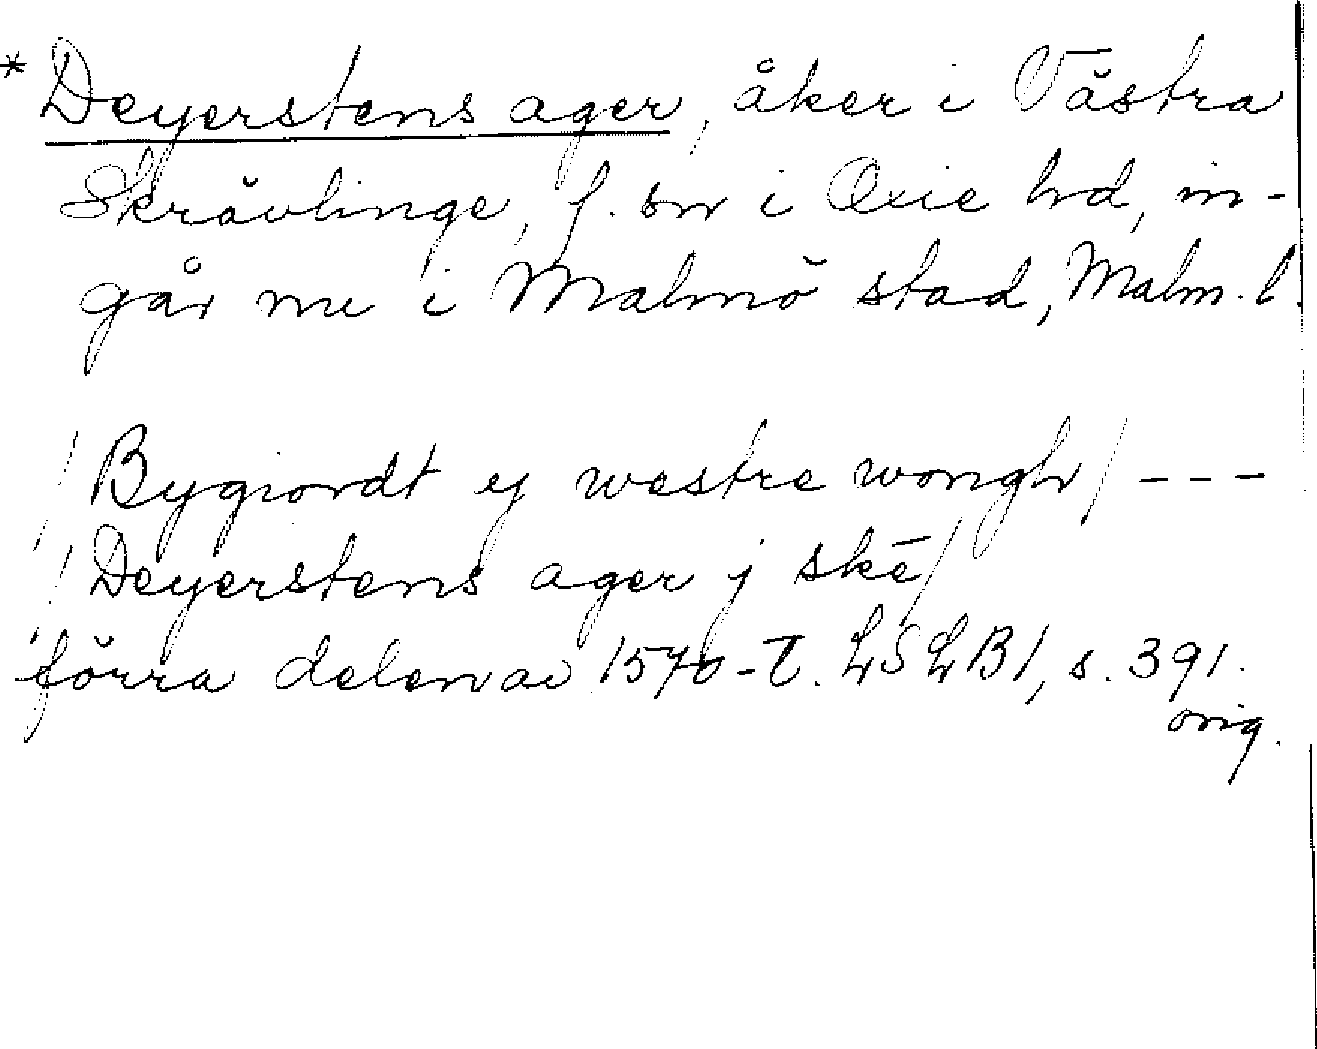 * Deyerstens ager, åker i Västra
Skrävlinge, f. sn i Oxie hd, in-
går nu i Malmö stad, Malm. l.
/Bygiordt ej westre wongh/ ---
/Deyerstens ager j skē/
förra delen av 1570-t. LSLB1, s. 391.
orig.